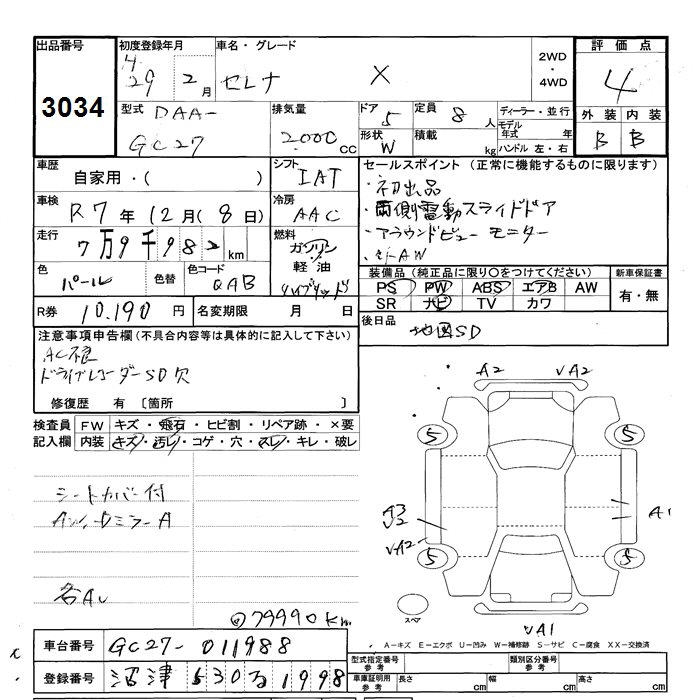 出品番号 初度登録年月 車名・グレード 評価点
3034
H 29 2月 セレナ X 2WD ・ 4WD 4
型式 DAA- GC27
排気量 2.000 cc
ドア 5 定員 8 人 ディーラー・並行
形状 W 積載 kg モデル年式 年
ハンドル 左・右
外装 内装
B B
車歴 自家用・( )
シフト IAT
セールスポイント (正常に機能するものに限ります)
・初出品
・両側電動スライドドア
・アラウンドビューモニター
車検 R7年12月(8日)
冷房 AAC
走行 7万9千982km
燃料 ガソリン 軽油 ハイブリッド
色 パール 色替 色コード QAB
装備品 (純正品に限り○をつけてください) 新車保証書
PS PW ABS エアB AW 有・無
SR ナビ TV カワ
R券 10.190円 名変期限 月 日
後日品 地図SD
注意事項申告欄 (不具合内容等は具体的に記入して下さい)
AC不良
ドライブレコーダーSD欠
修復歴 有 〔箇所 〕
検査員記入欄 FW キズ・飛石・ヒビ割・リペア跡・×要
内装 キズ・汚レ・コゲ・穴・スレ・キレ・破レ
シートカバー付
A2 VA2
5 5
A1
VA2
5 5
各AU
79990km
スペア
VA1
A-キズ E-エクボ U-凹み W-補修跡 S-サビ C-腐食 XX-交換済
車台番号 GC27-011988
登録番号 沼津 530 る 1998
型式指定番号 参考 類別区分番号 参考
車庫証明用 参考 長さ cm 幅 cm 高さ cm